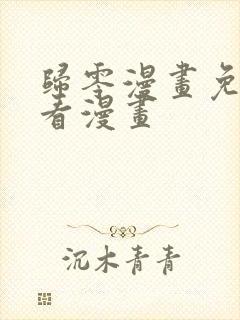 歸零漫畫免
看漫畫
沉木青青